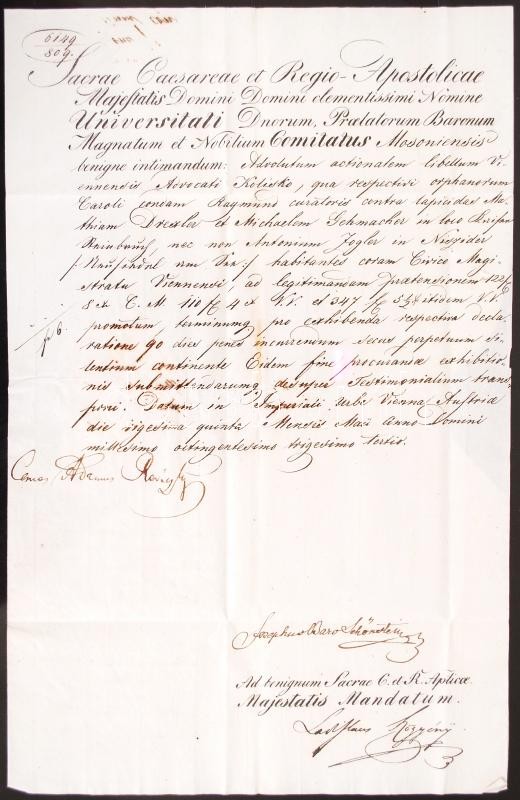 5149
809.
Sacrae Caesareae et Regio-Apostolicae
Majestatis Domini Domini clementissimi Nomine
Universitati Dnorum, Praelatorum Baronum
Magnatum et Nobilium Comitatus Mosoniensis
benigne intimandum: Advolutum actionalem libellum Vi-
ennensis Advocati Kolisko, qua respectivi orphanorum
Caroli condam Raymund curatoris contra lapicidas Ma-
thiam Drexler et Michaelem Gehmacher in loco Kaiser
Steinbruch, nec non Antonium Fogler in Nesider
habitantes coram Civico Magi-
stratu Viennensi, ad legitimandam praetensionem
8 x C. M. 110 f 4 x V. V. et 347 f itidem V. V.
promotum, terminumq pro exhibenda respectiva decla-
ratione 90 die penes incurrenum secus perpetuum si-
lentium continente Eidem fine procurandae exhibitio-
nis submittendarumq desuper Testimonialium trans-
poni. Datum in Imperiali Urbe Vienna Austriae
die vigesima quinta Mensis Maii Anno Domini
millesimo octingentesimo trigesimo tertio.
Comes Adamus
Josephus Baro Schönstein
Ad benignum Sacrae C. et R. Aplicae
Majestatis Mandatum.
Ladislaus